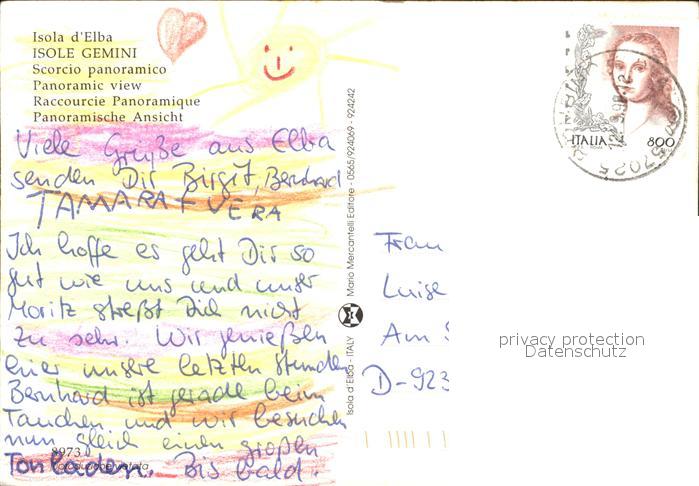 Isola d'Elba
ISOLE GEMINI
Scorcio panoramico
Panoramic view
Raccourcie Panoramique
Panoramische Ansicht
Viele Grüße aus Elba
senden Dir Birgit, Bernhard
TAMARA + VERA
Ich hoffe es geht Dir so
gut wie uns und unser
Moritz streßt Dich nicht
zu sehr. Wir genießen
hier unsere letzten Stunden
Bernhard ist gerade beim
Tauchen und wir besuchen
nun gleich einen großen
8973
Tonladen. Bis bald.
Isola d'Elba - ITALY
Mario Mercantelli Editore - 0565/924069 - 924242
ITALIA 800
57025
Frau
Luise
Am
D-923
privacy protection
Datenschutz